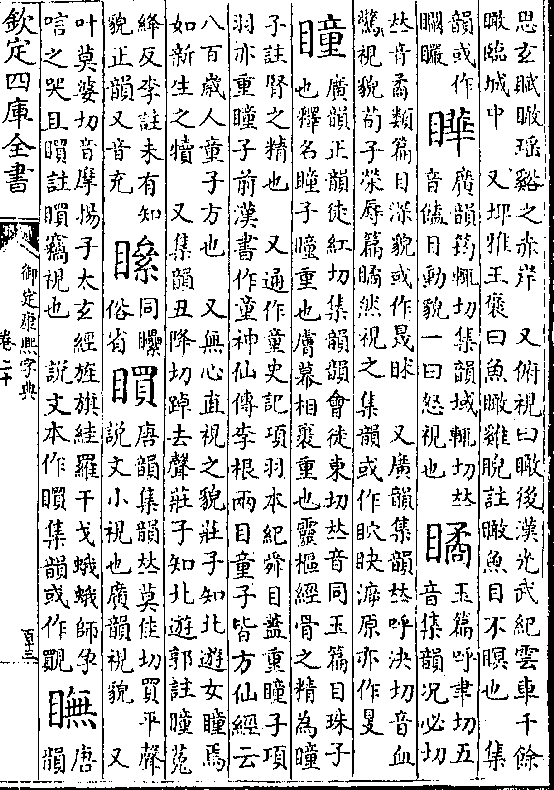 思玄賦瞰瑤谿之赤岸　又俯視曰瞰後漢光武紀雲車千餘
瞰臨城中　又埤雅王褒曰魚瞰雞睨註瞰魚目不瞑也　集
韻或作
矙
瞱
廣韻筠輒切集韻域輒切𠀤
音饁目動貌一曰怒視也
瞲
玉篇呼聿切五
音集韻況必切
𠀤音矞類篇目深貌或作　又廣韻集韻𠀤呼決切音血
驚視貌荀子榮辱篇瞲然視之　集韻或作　亦作
瞳
廣韻正韻徒紅切集韻韻會徒東切𠀤音同玉篇目珠子
也釋名瞳子瞳重也膚幕相裹重也靈樞經骨之精為瞳
子註腎之精也　又通作童史記項羽本紀舜目蓋重瞳子項
羽亦重瞳子前漢書作童神仙傳李根兩目童子皆方仙經云
八百歲人童子方也　又無心直視之貌莊子知北遊女瞳焉
如新生之犢　又集韻丑降切踔去聲莊子知北遊郭註瞳菟
絳反李註未有知
貌正韻又音充
同矏
俗省
䁲
唐韻集韻𠀤莫佳切買平聲
說文小視也廣韻視貌　又
叶莫婆切音摩揚子太玄經旌旗絓羅干戈蛾蛾師孕
唁之哭且䁲註䁲竊視也　說文本作䁲集韻或作
瞴
唐
韻
欽定四庫全書
御定康熙字典
卷二十